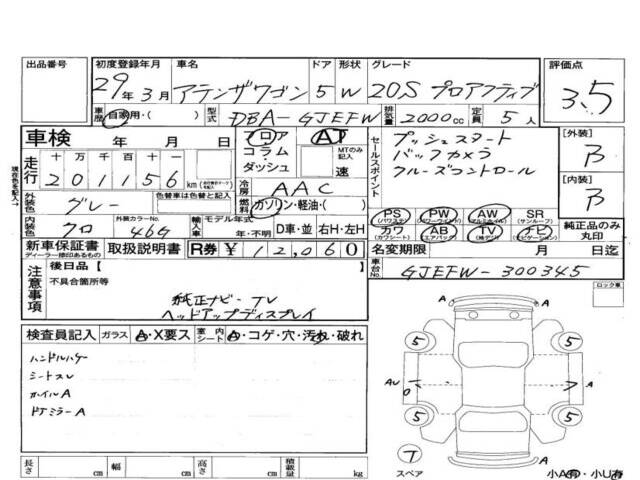 出品番号 初度登録年月 車名 ドア 形状 グレード 評価点
29年3月 アテンザワゴン 5 W 20S プロアクティブ 3.5
車歴 自家用・( ) 型式 DBA-GJEFW 排気量 2000cc 定員 5人
車検 年 月 日 フロア AT
コラム・ダッシュ MTのみ記入 速
走行 十万千百十一
201156 km
冷房 AAC
燃料 ガソリン・軽油・( )
外装色 グレー 色替車は色替と記入
内装色 クロ 外装カラーNo. 46G 輸入車 モデル年式 年・不明 D車・並 右H・左H
新車保証書 取扱説明書 R券 ¥12,060
ディーラー捺印あるもの
セールスポイント
プッシュスタート
バックカメラ
クルーズコントロール
[外装] B
[内装] B
PS PW AW SR
(パワステ) (パワーウインド) (アルミホイル) (サンルーフ)
カワ AB TV ナビ
(カワシート) (エアバック) (純テレビ) (ナビゲーション)
純正品のみ丸印
名変期限 月 日迄
車台No. GJEFW-300345
現在色を記入
注意事項
後日品 [ ]
不具合箇所等
純正ナビ-TV
ヘッドアップディスプレイ
検査員記入 ガラス A・X要ス 室内シート A・コゲ・穴・汚れ・破れ
ハンドルハゲ
シートスレ
ホイルA
ドアミラーA
ロック車
A A
5 5
AU A
5 5
A
T
スペア
小A有・小U有
長さ cm 幅 cm 高さ cm 積載量 kg